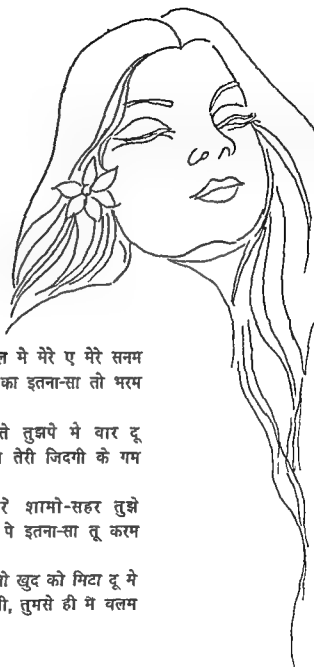 मे मेरे ए मेरे सनम
का इतना-सा तो भरम
तुझपे मे वार दू
तेरी जिदगी के गम
शामो-सहर तुझे
पे इतना-सा तू करम
खुद को मिटा दू मे
तुमसे ही मै वलम